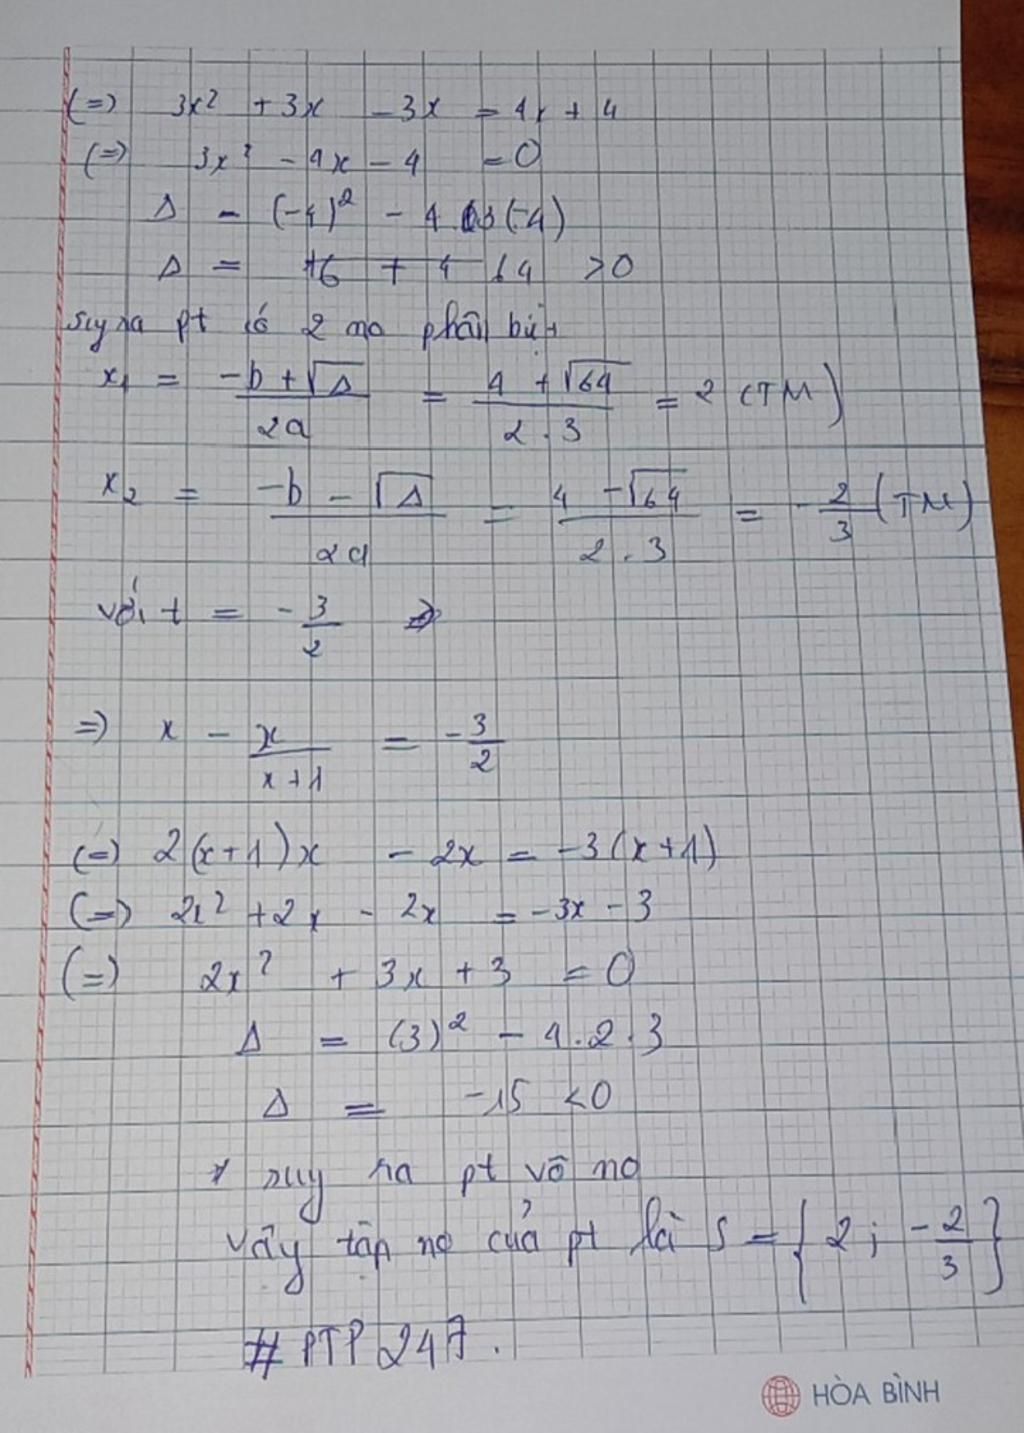 (=) 3x² + 3x - 3x = 4x + 4
(=) 3x² - 4x - 4 = 0
Δ = (-4)² - 4.3(-4)
Δ = 64 >0
suy ra pt có 2 no phân biệt
x₁ = (-b + √Δ)/2a = (4 + √64)/(2.3) = 2 (TM)
x₂ = (-b - √Δ)/2a = (4 - √64)/(2.3) = -2/3 (TM)
với t = -3/2
=) x - x/(x+1) = -3/2
(=) 2(x+1)x - 2x = -3(x+1)
(=) 2x² + 2x - 2x = -3x - 3
(=) 2x² + 3x + 3 = 0
Δ = (3)² - 4.2.3
Δ = -15 <0
suy ra pt vô no
vậy tập no của pt là S = {2; -2/3}
# PTP 247.
HÒA BÌNH